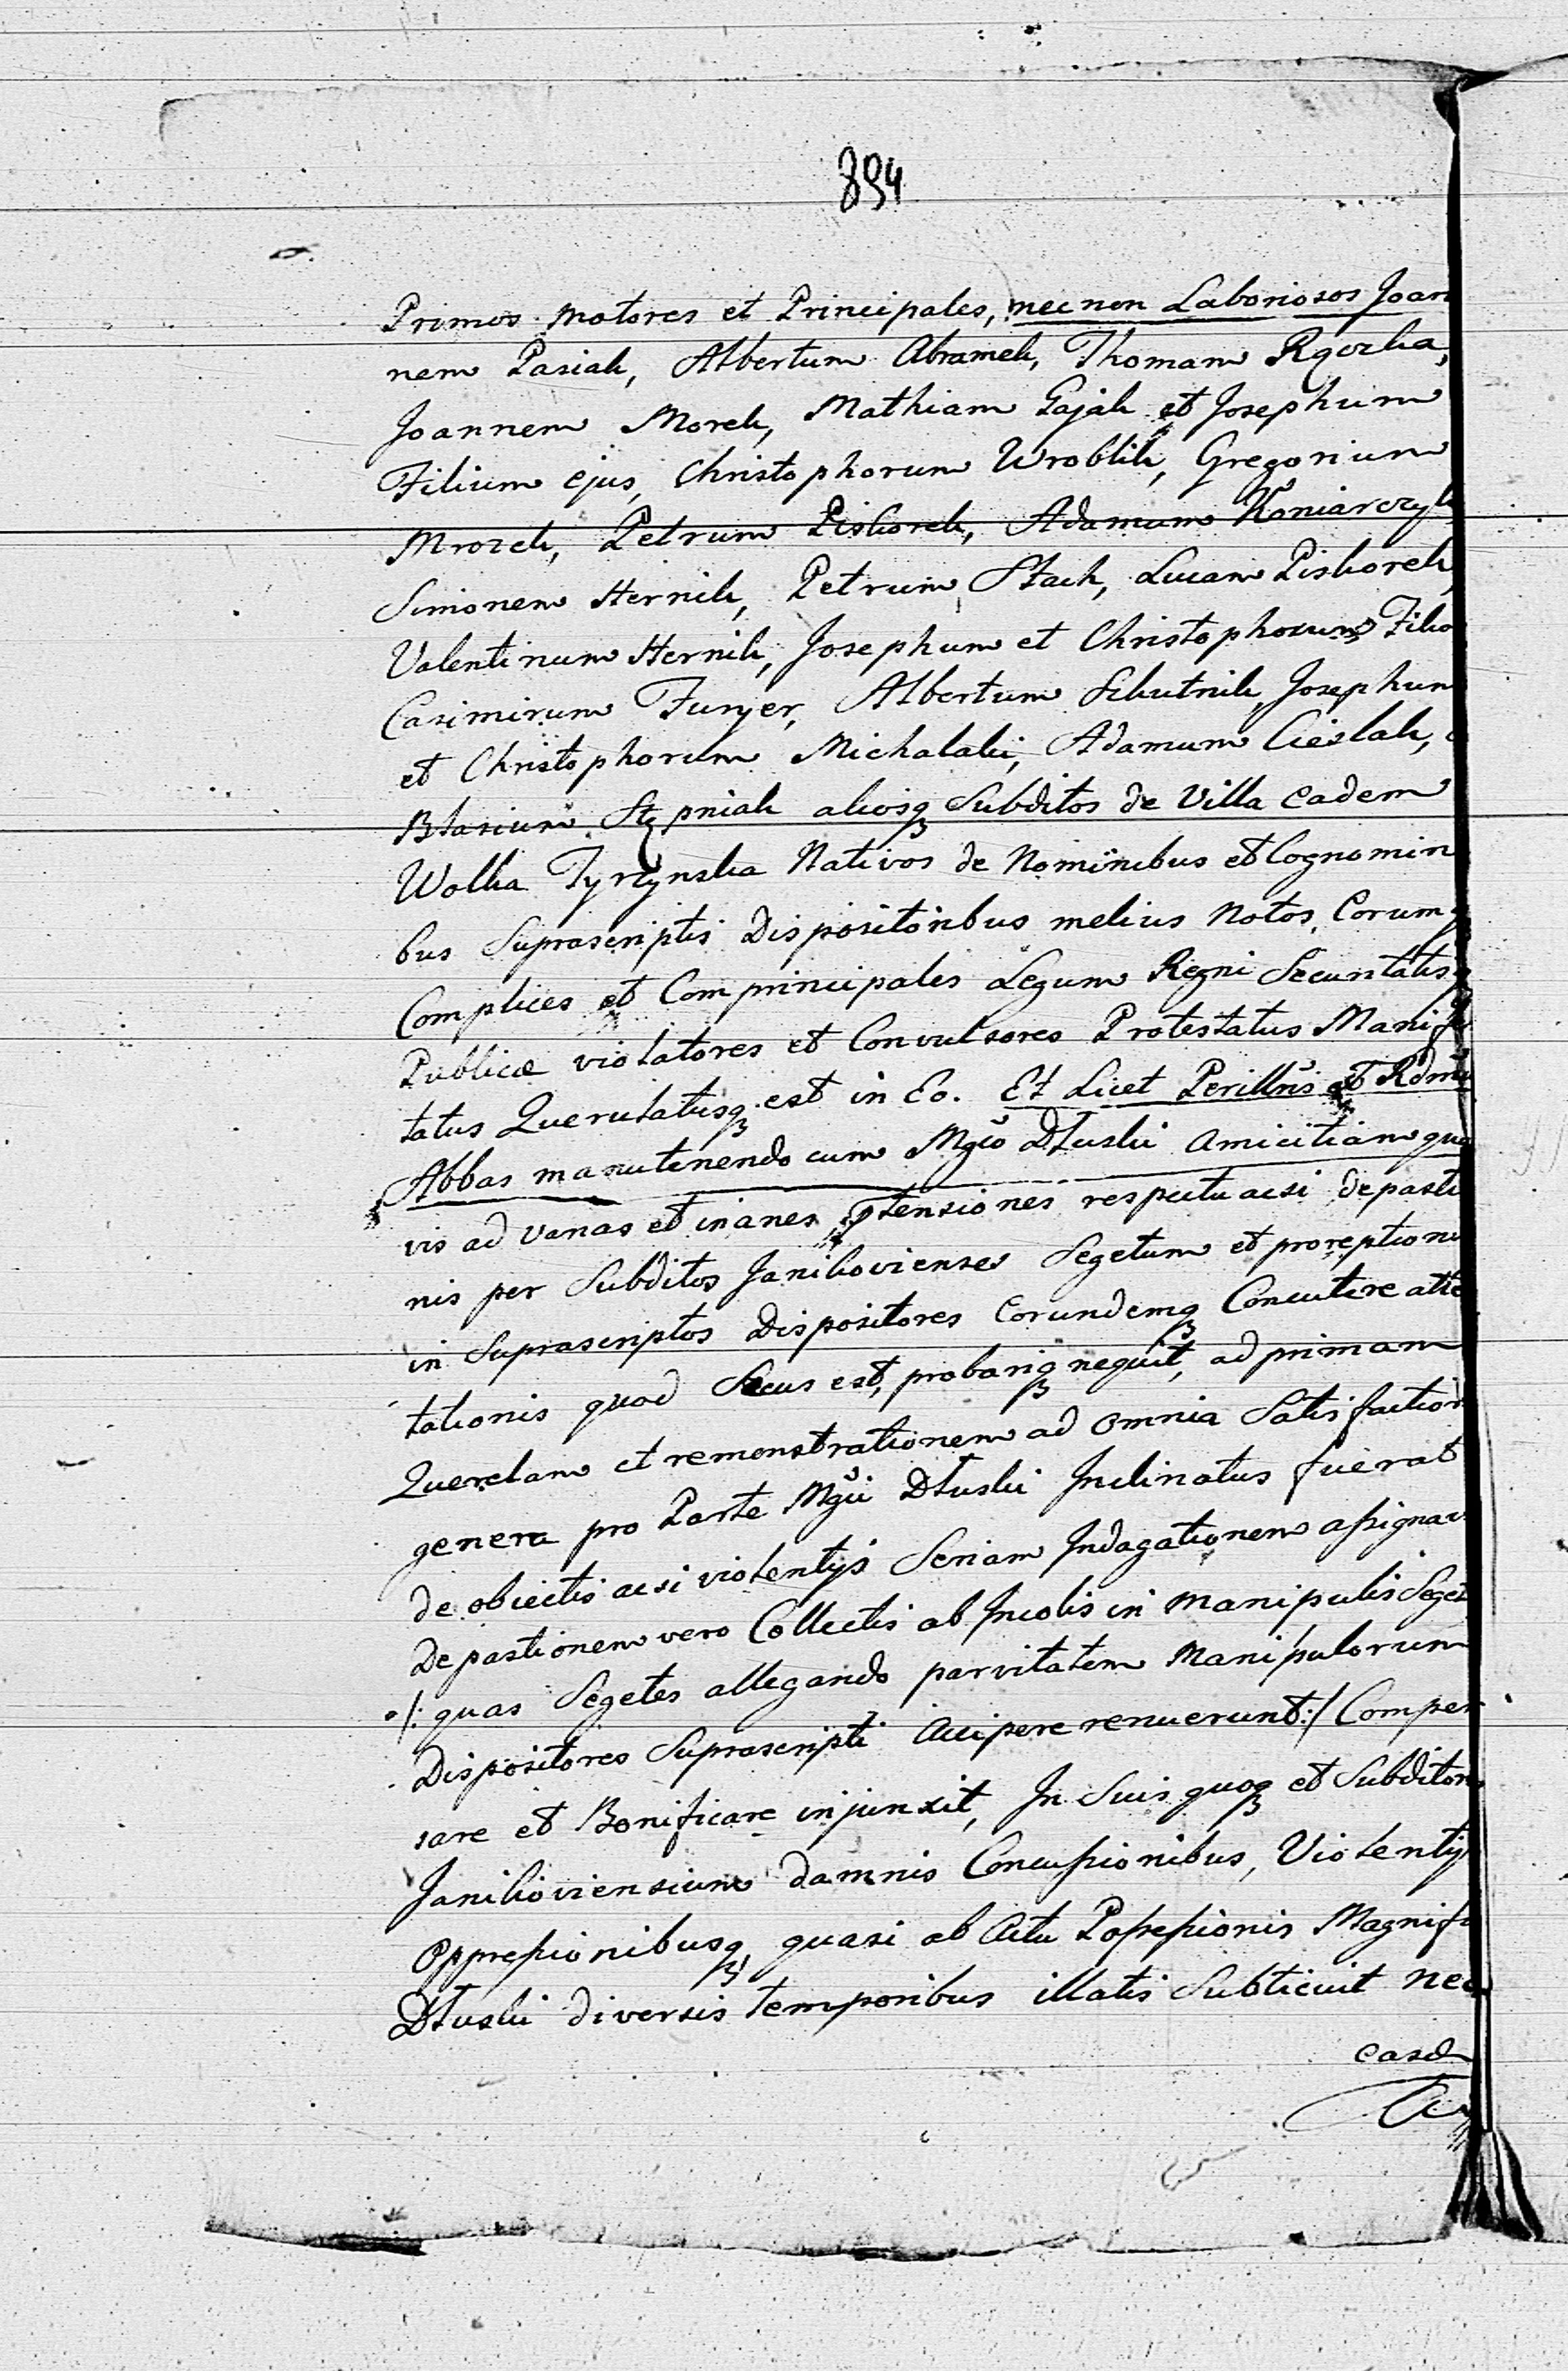 894
Primos motores et Principales, necnon Laboriosos Joan
nem Pasiak, Albertum Abramek, Thomam Rączka,
Joannem Morek, Mathiam Gajak et Josephum
Filium ejus, Christophorum Wroblik, Gregorium
Mrozek, Petrum Piskorek, Adamum Koniarczyk
Simonem Hernik, Petrum Stach, Lucam Piskorek,
Valentinum Hernik, Josephum et Christophorum Filio
Casimirum Furyer, Albertum Skutnik, Josephum
et Christophorum Michalaki, Adamum Cieslak,
Blasium Stępniak aliosq Subditos de Villa eadem
Wolka Tyrzynska Nativos de Nominibus et Cognomin
bus Suprascriptis Dispositoribus melius Notos, Eorumq
Complices et Comprincipales Legum Regni Securitatisq
Publicæ violatores et Convulsores Protestatus Manifes
tatus Querulatusq est in Eo. Et Licet Perillris et Rdmus
Abbas manutenendo cum Mgco Dłuski Amicitiam qua
vis ad vanas et inanes ptensiones respectu acsi depastio
nis per Subditos Janikovienses Segetum et proreptionis
in Suprascriptos Dispositores Eorundemq Concutere atte
tationis quod Secus est, probariq nequit, ad primam
Querelam et remonstrationem ad omnia Satisfaction
genera pro Parte Mgci Dłuski Inclinatus fuerat
de obiectis acsi violentijs Seriam Indagationem assignav
Depastionem vero Collectis ab Incolis in manipulis Seget
/: quas Segetes allegando parvitatem Manipulorum
Dispositores Suprascripti Accipere renuerunt :/ Compen
sare et Bonificare injunxit, In Suis quoq et Subditorum
Janikoviensium damnis Concussionibus, Violentijs
Oppressionibusq, quasi ab Actu Possessionis Magnifici
Dłuski diversis temporibus illatis Subticuit nec
easd